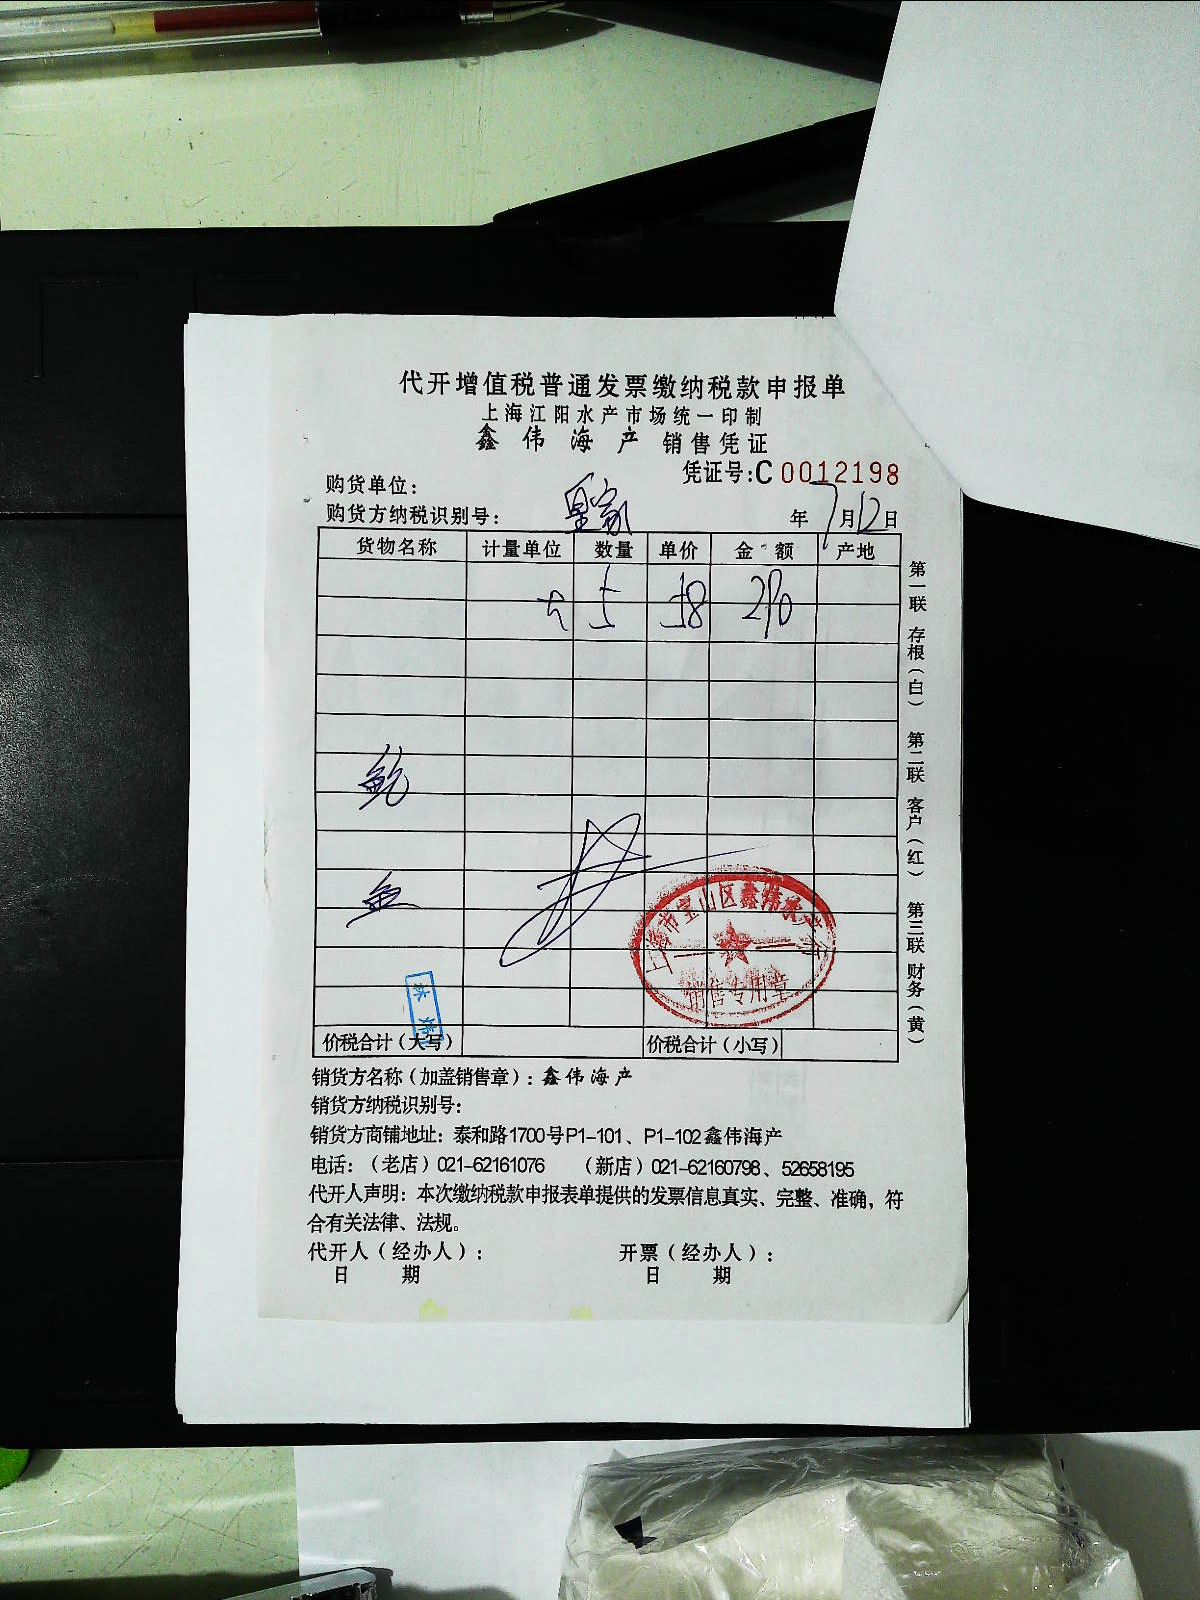 代开增值税普通发票缴纳税款申报单
上海江阳水产市场统一印制
鑫伟海产 销售凭证
凭证号:C 0012198
购货单位:
皇家
购货方纳税识别号:
年 7月12日
货物名称 计量单位 数量 单价 金额 产地
5 58 290
鲍
鱼
上海市宝山区鑫伟水产行
销售专用章
价税合计(大写) 价税合计(小写)
销货方名称(加盖销售章):鑫伟海产
销货方纳税识别号:
销货方商铺地址:泰和路1700号P1-101、P1-102鑫伟海产
电话:(老店)021-62161076 (新店)021-62160798、52658195
代开人声明:本次缴纳税款申报表单提供的发票信息真实、完整、准确,符
合有关法律、法规。
代开人(经办人): 开票(经办人):
日 期 日 期
第一联 存根(白) 第二联 客户(红) 第三联 财务(黄)